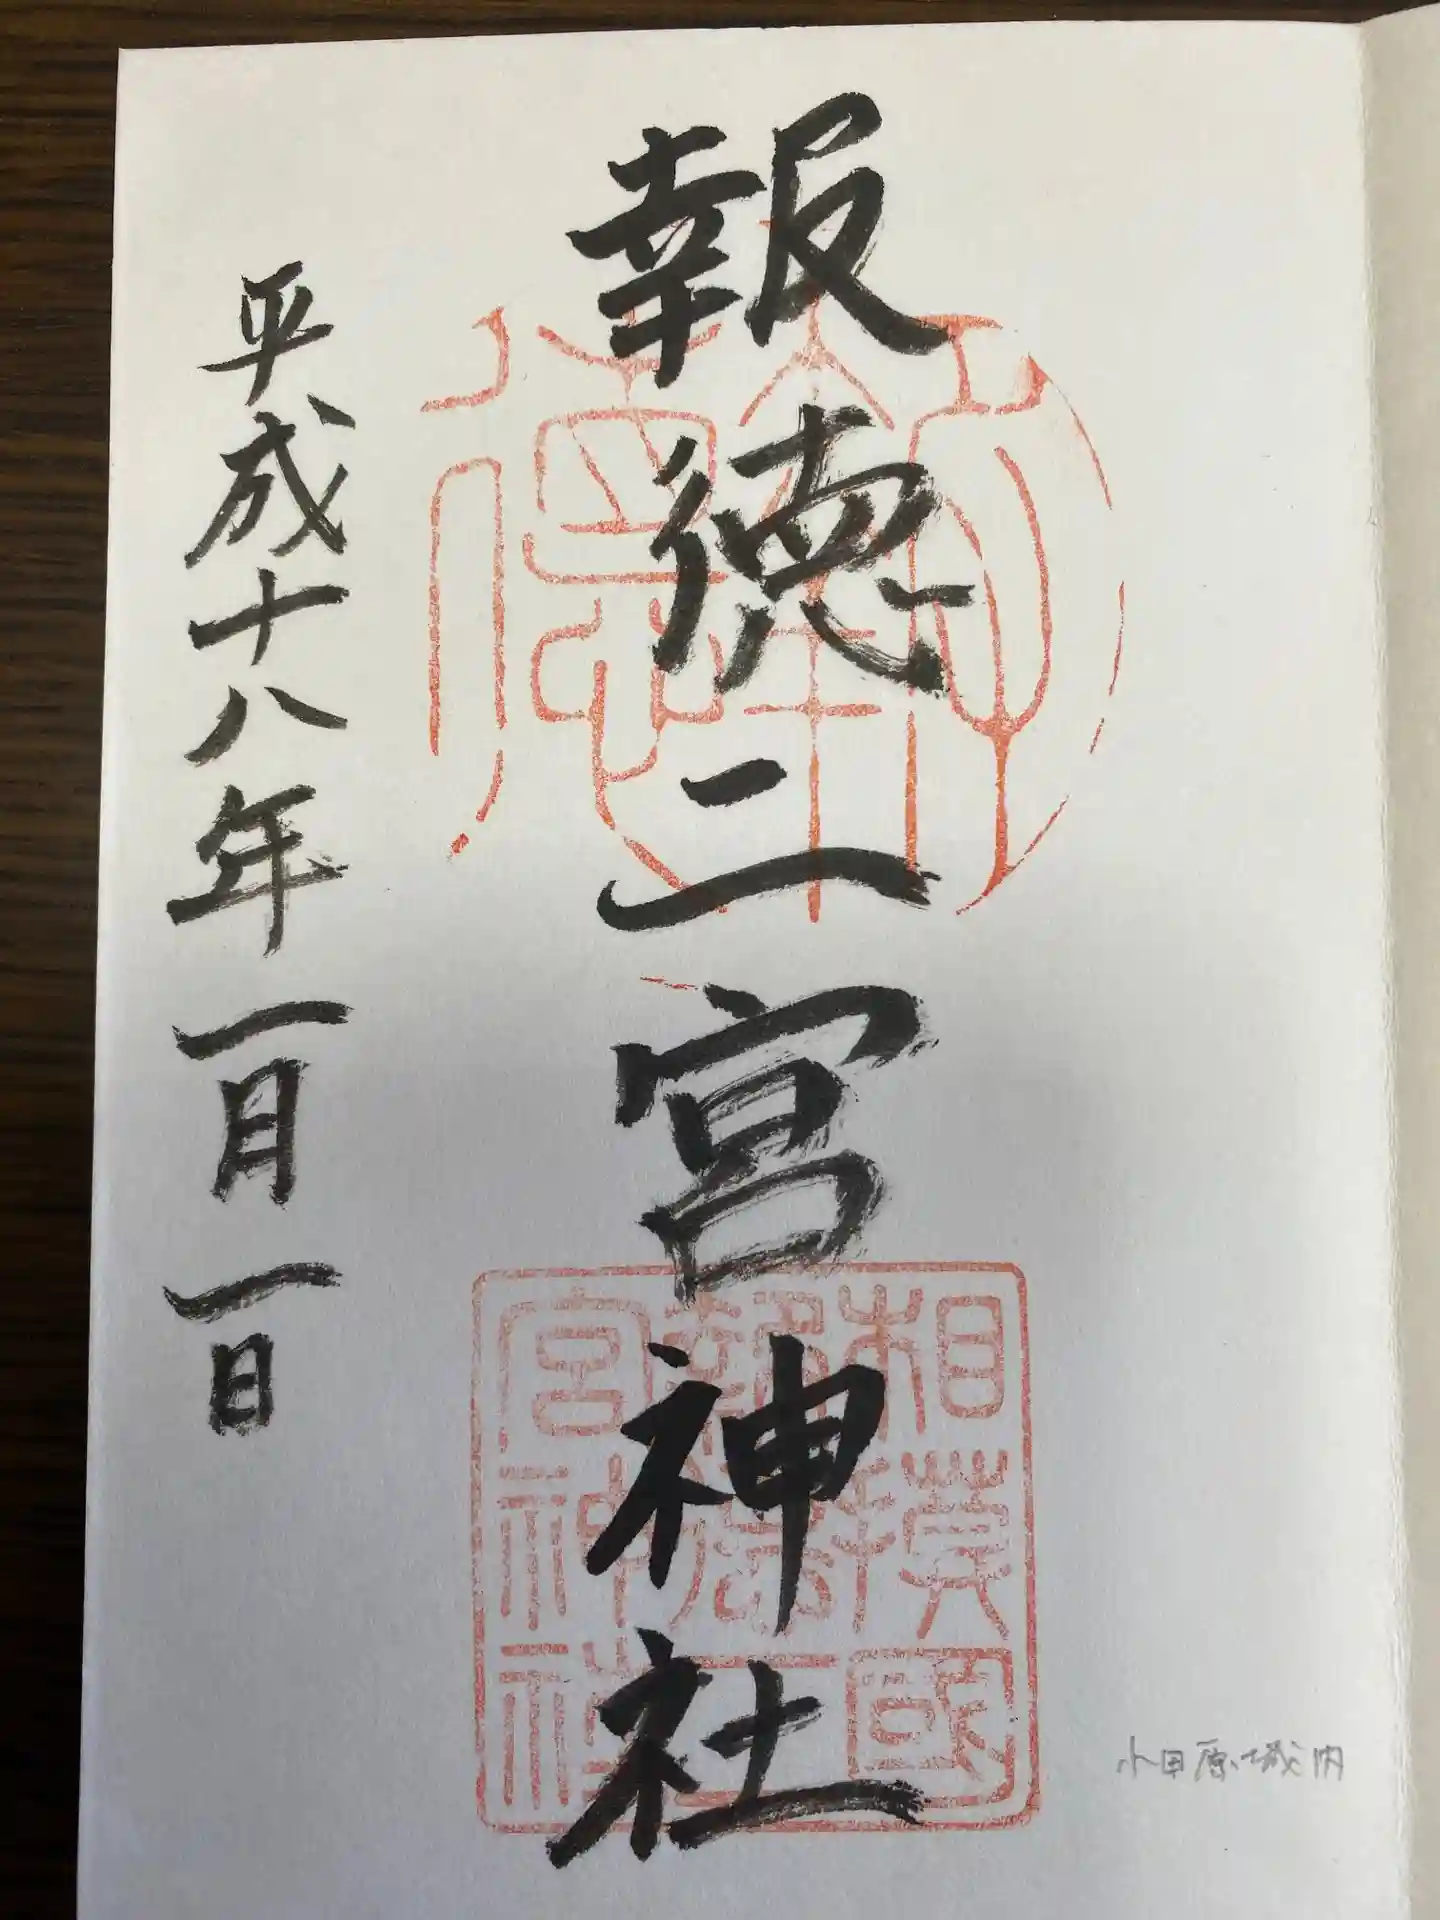 報徳二宮神社
平成十八年一月一日
相模國
報徳二
宮神社
小田原城内